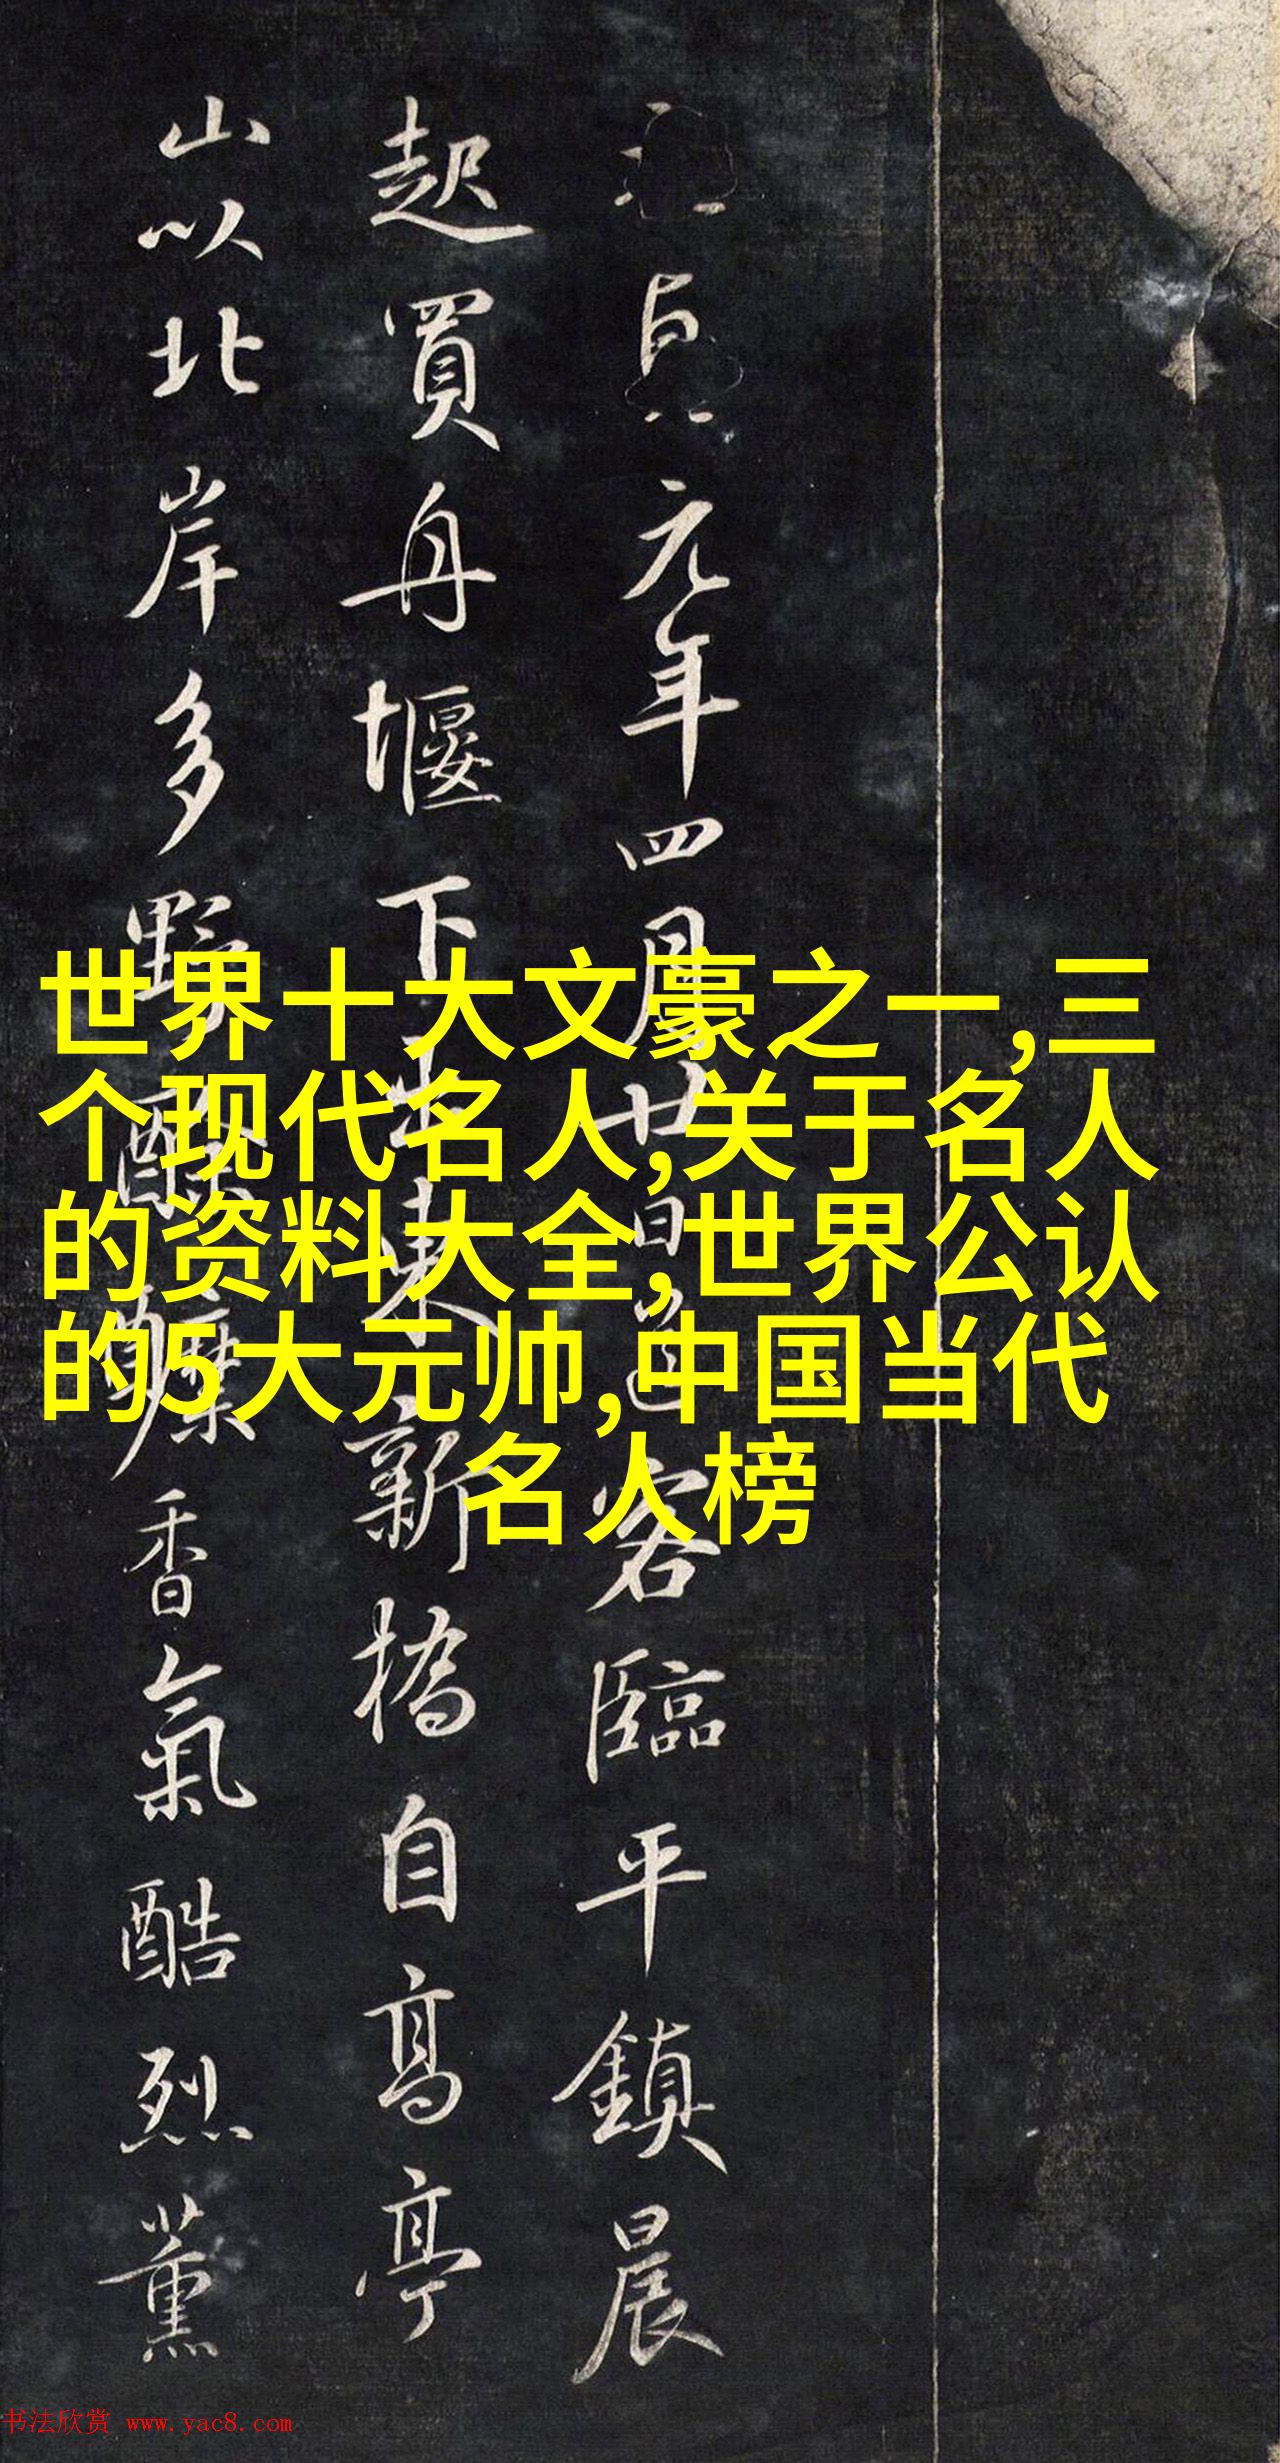 世界十大文豪之一,三
个现代名人,关于名人
的资料大全,世界公认
的5大元帅,中国当代
名人榜
元年四月廿日 客臨平鎮晨
起買舟堰下 東新橋自高亭
山以北岸多野 香氣酷烈薰
书法欣赏 www.yac8.com